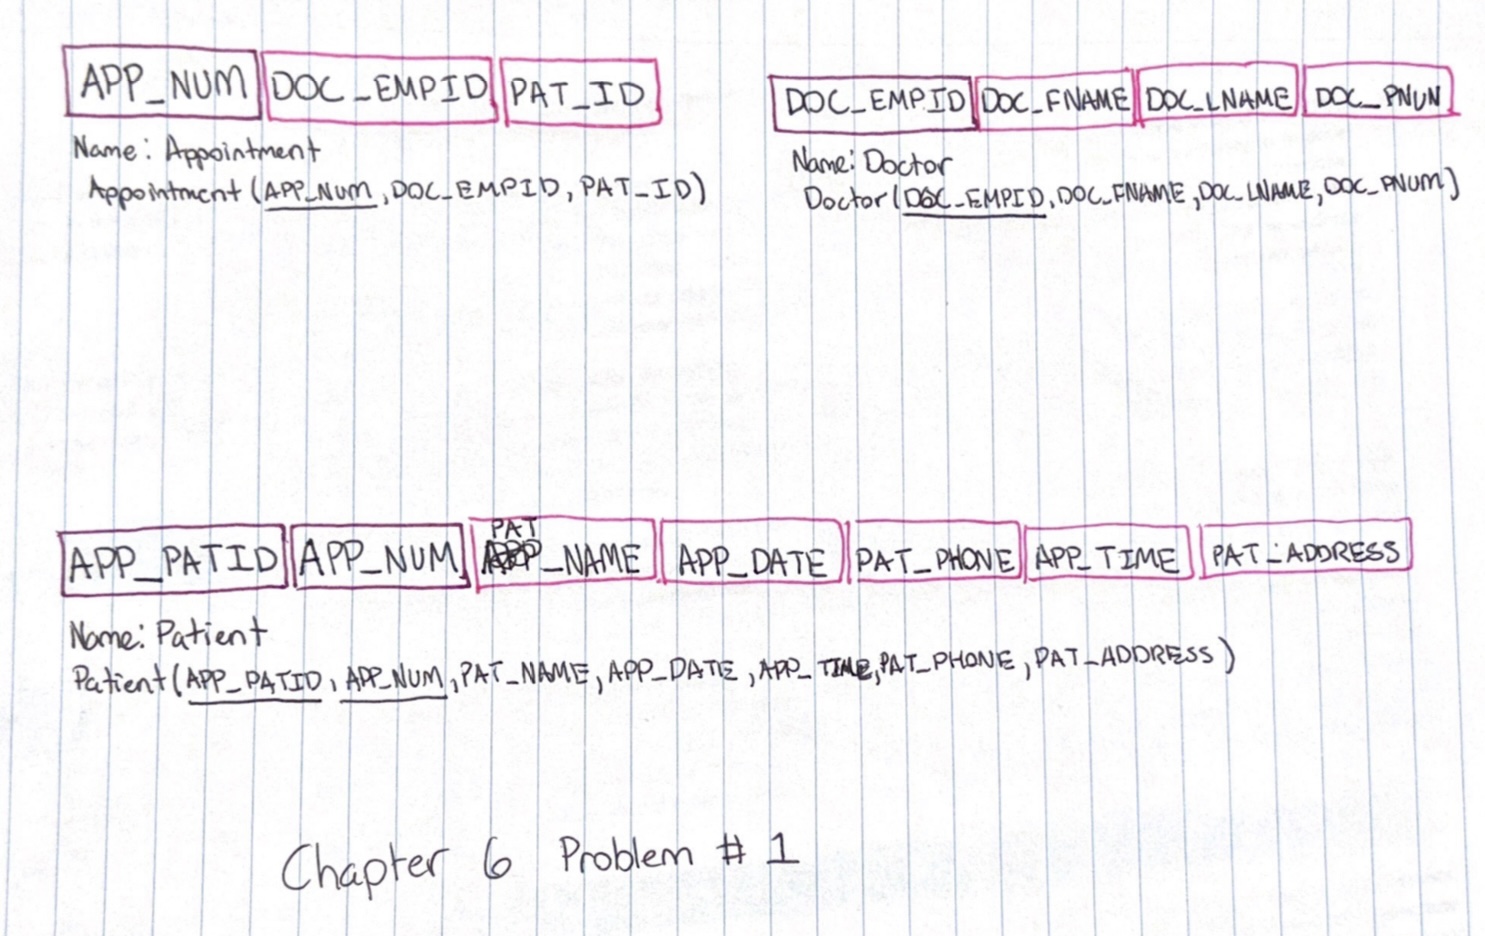 APP_NUM DOC_EMPID PAT_ID
Name: Appointment
Appointment (APP_NUM, DOC_EMPID, PAT_ID)
DOC_EMPID DOC_FNAME DOC_LNAME DOC_PNUN
Name: Doctor
Doctor (DOC_EMPID, DOC_FNAME, DOC_LNAME, DOC_PNUM)
APP_PATID APP_NUM PAT_NAME APP_DATE PAT_PHONE APP_TIME PAT_ADDRESS
Name: Patient
Patient (APP_PATID, APP_NUM, PAT_NAME, APP_DATE, APP_TIME, PAT_PHONE, PAT_ADDRESS)
Chapter 6 Problem # 1